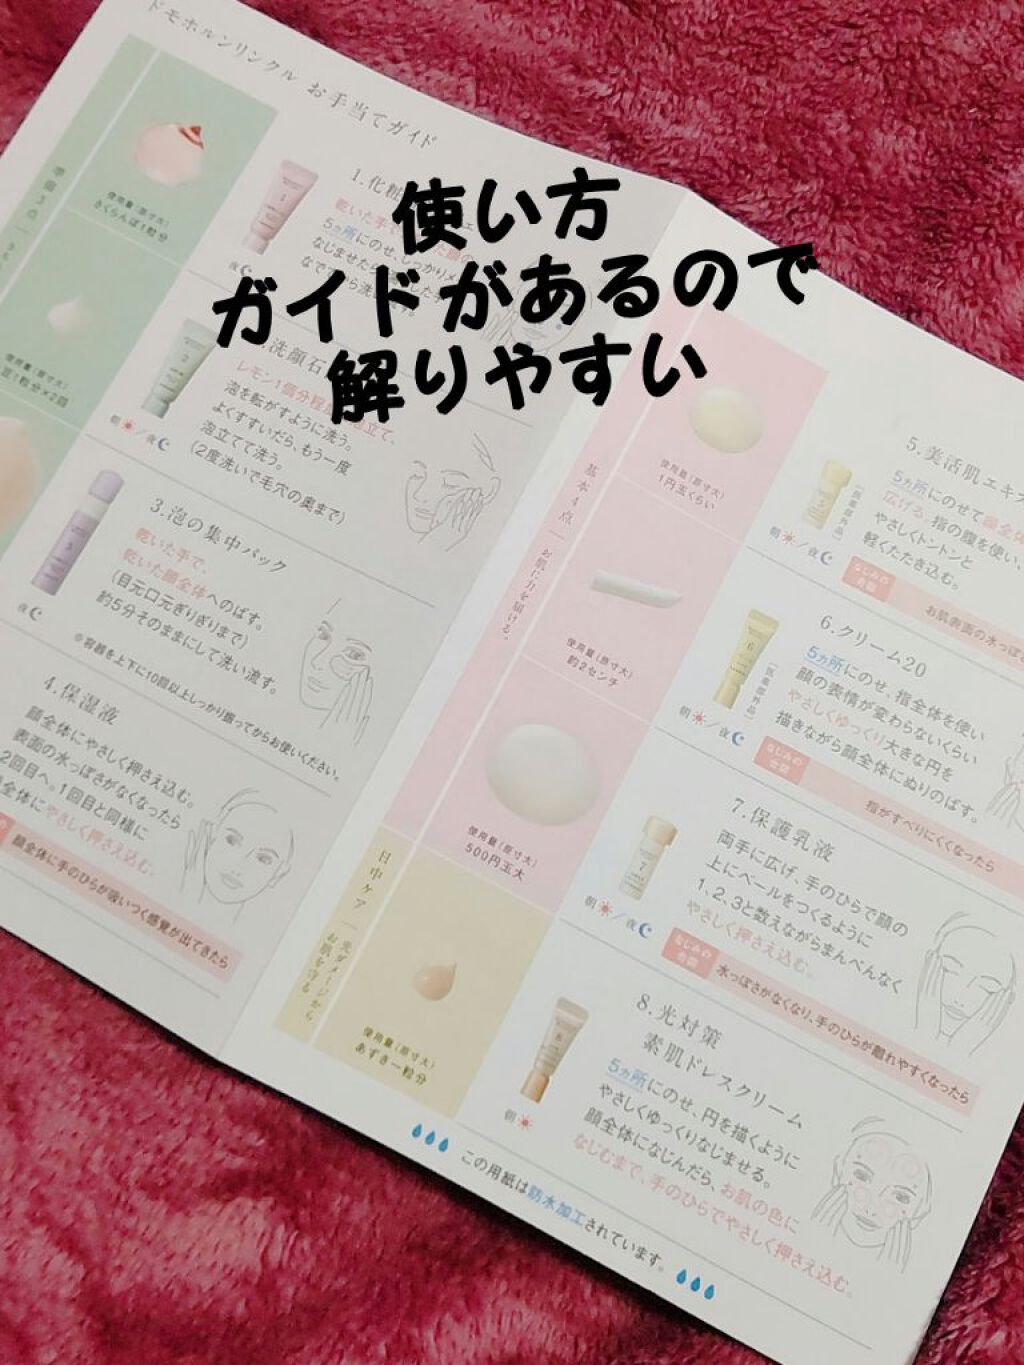 使い方
ガイドがあるので
解りやすい
ドモホルンリンクル お手当てガイド
準備3点
使用量(原寸大)
さくらんぼ1粒分
1.化粧
乾いた手
5ヵ所にのせ、しっかりメ
なじませたら
夜
使用量(原寸大)
豆1粒分×2回
洗顔石
レモン1個分程
泡を転がすように洗う。
よくすすいだら、もう一度
泡立てて洗う。
(2度洗いで毛穴の奥まで)
朝/夜
3.泡の集中パック
乾いた手で、
乾いた顔全体へのばす。
(目元口元ぎりぎりまで)
約5分そのままにして洗い流す。
※容器を上下に10回以上しっかり振ってからお使いください。
夜
4.保湿液
顔全体にやさしく押さえ込む。
表面の水っぽさがなくなったら
2回目へ。1回目と同様に
全体にやさしく押さえ込む。
顔全体に手のひらが吸いつく感覚が出てきたら
基本4点 お肌に力を届ける。
使用量(原寸大)
1円玉くらい
5.美活肌エキス
5ヵ所にのせて顔全体
広げる。指の腹を使い、
やさしくトントンと
軽くたたき込む。
[医薬部外品]
朝/夜
なじみの合図
お肌表面の水っぽさ
使用量(原寸大)
約2センチ
6.クリーム20
5ヵ所にのせ、指全体を使い
顔の表情が変わらないくらい
やさしくゆっくり大きな円を
描きながら顔全体にぬりのばす。
[医薬部外品]
朝/夜
なじみの合図
指がすべりにくくなったら
使用量(原寸大)
500円玉大
7.保護乳液
両手に広げ、手のひらで顔の
上にベールをつくるように
1、2、3と数えながらまんべんなく
やさしく押さえ込む。
朝/夜
なじみの合図
水っぽさがなくなり、手のひらが離れやすくなったら
日中ケア 光ダメージからお肌を守る
使用量(原寸大)
あずき一粒分
8.光対策
素肌ドレスクリーム
5ヵ所にのせ、円を描くように
やさしくゆっくりなじませる。
顔全体になじんだら、お肌の色に
なじむまで、手のひらでやさしく押さえ込む。
朝
この用紙は防水加工されています。